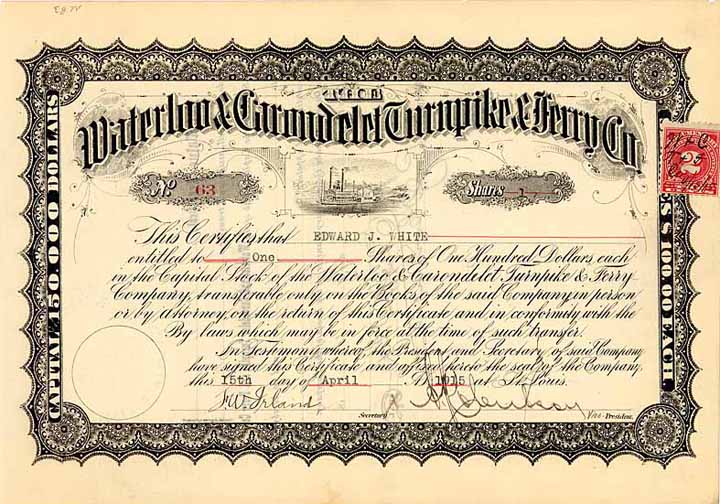 THE
Waterloo & Carondelet Turnpike & Ferry Co.
No 63
Shares 1
CAPITAL $150.000 DOLLARS
SHARES $100.00 EACH
This Certifies that EDWARD J. WHITE
entitled to One Shares of One Hundred Dollars, each
in the Capital Stock of the Waterloo & Carondelet Turnpike & Ferry
Company, transferable only on the Books of the said Company in person
or by Attorney, on the return of this Certificate and in conformity with the
By laws which may be in force at the time of such transfer.
In Testimony whereof, the President and Secretary of said Company,
have signed this Certificate and affixed hereto the seal of the Company,
this 15th day of April A.D. 1915 at St. Louis.
Secretary
Vice-President.